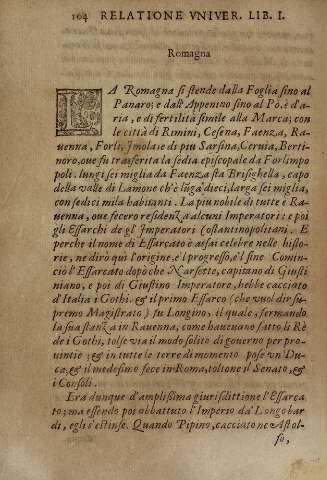 104 RELATIONE VNIVER. LIB. I.
Romagna
LA Romagna si stende dalla Foglia sino al
Panaro; e dall' Appenino sino al Pò. è d'a-
ria, e di fertilità simile alla Marca; con
le città di Rimini, Cesena, Faenza, Ra-
uenna, Forlì, Imola: e di piu Sarsina, Ceruia, Berti-
noro, oue fu trasferita la sedia episcopale da Forlimpo
poli. lungi sei miglia da Faenza sta Brisighella, capo
della valle di Lamone ch'è lūga dieci, larga sei miglia,
con sedici mila habitanti. La piu nobile di tutte è Ra-
uenna, oue fecero residenza alcuni Imperatori: e poi
gli Essarchi de gl' Imperatori Costantinopolitani. E
perche il nome di Essarcato è assai celebre nelle histo-
rie, ne dirò quì l'origine, e'l progresso, e'l fine. Comin-
ciò l'Essarcato dopò che Narsette, capitano di Giusti
niano, e poi di Giustino Imperatore, hebbe cacciato
d'Italia i Gothi. & il primo Essarco (che vuol dir su-
premo Magistrato) fu Longino, il quale, fermando
la sua stanza in Rauenna, come haueuano fatto li Rè
de i Gothi, tolse via il modo solito di gouerno per pro-
uintie; & in tutte le terre di momento pose vn' Du-
ca, & il medesimo fece in Roma, toltone il Senato, &
i Consoli.
Era dunque d'amplissima giurisdittione l'Essarca-
to; ma essendo poi abbattuto l'Imperio da' Longobar
di, egli s'estinse. Quando Pipino, cacciatone Astol-
fo,